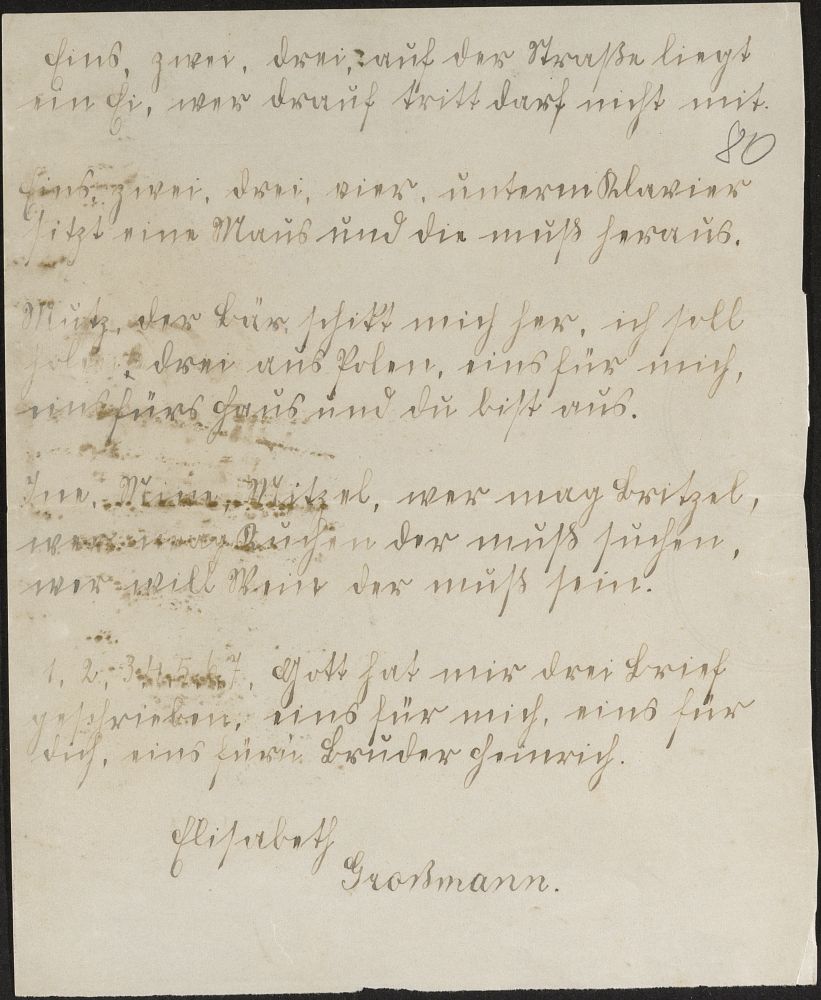 Eins, zwei, drei, auf der Straße liegt
ein Ei, wer drauf tritt darf nicht mit.
80
Eins, zwei, drei, vier, unterm Klavier
sitzt eine Maus und die muß heraus.
Mutz, der Bär, schikt mich her, ich soll
holen, drei aus Polen, eins für mich,
eins fürs Haus und du bist aus.
Ine, Meine, Mitzel, wer mag Britzel,
wer mag Kuchen der muß suchen,
wer will Wein der muß sein.
1, 2, 3, 4, 5, 6, 7, Gott hat mir drei Brief
geschrieben, eins für mich, eins für
dich, eins fürn Bruder Heinrich.
Elisabeth
Großmann.